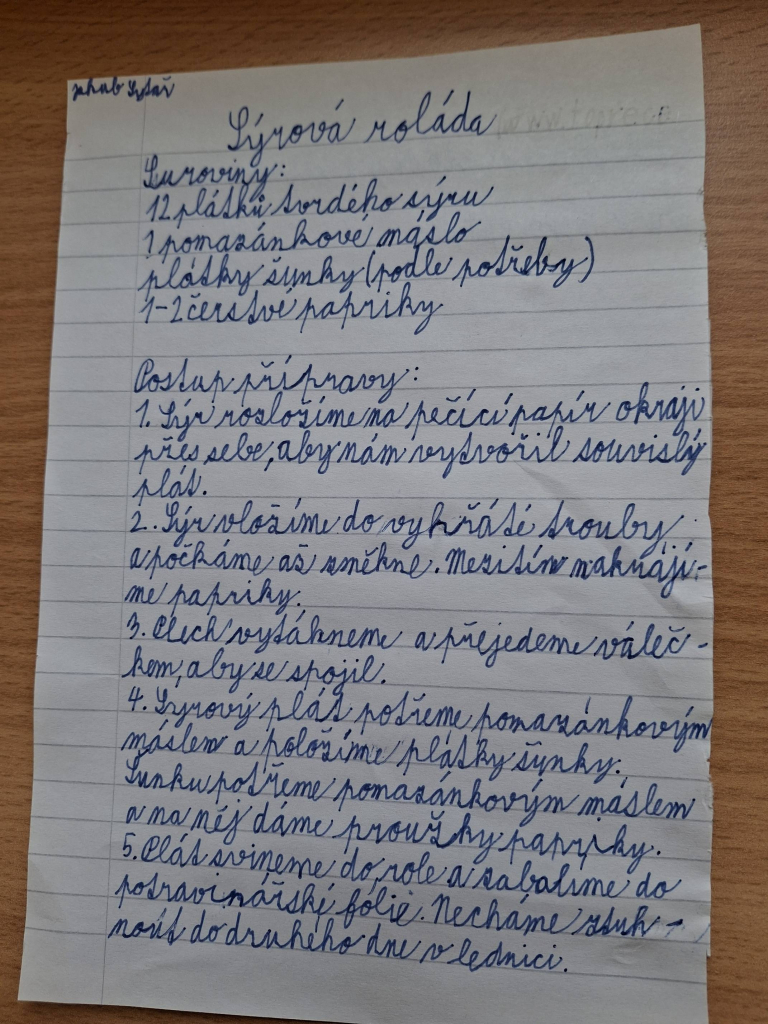 Jakub Sytař
Sýrová roláda
Suroviny:
12 plátků tvrdého sýru
1 pomazánkové máslo
plátky šunky (podle potřeby)
1-2 čerstvé papriky
Postup přípravy:
1. Sýr rozložíme na pečící papír okraji
přes sebe, aby nám vytvořil souvislý
plát.
2. Sýr vložíme do vyhřáté trouby
a počkáme až změkne. Mezitím nakrájí-
me papriky.
3. Plech vytáhneme a přejedeme váleč-
kem, aby se spojil.
4. Sýrový plát potřeme pomazánkovým
máslem a položíme plátky šunky.
Šunku potřeme pomazánkovým máslem
a na něj dáme proužky papriky.
5. Plát svineme do role a zabalíme do
potravinářské fólie. Necháme ztuh-
nout do druhého dne v lednici.